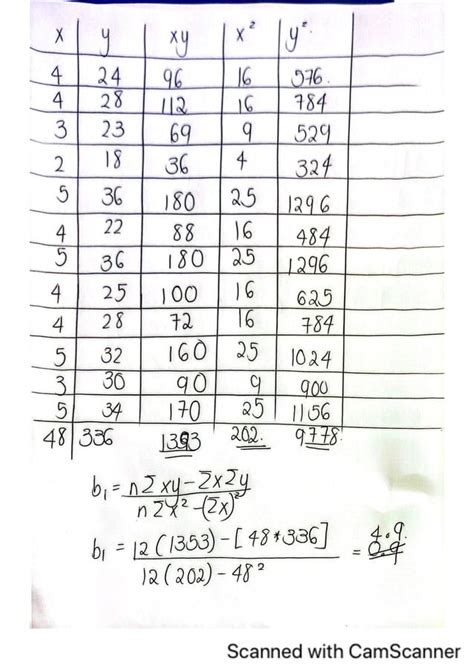 x y xy x² y²
4 24 96 16 576.
4 28 112 16 784
3 23 69 9 529
2 18 36 4 324
5 36 180 25 1296
4 22 88 16 484
5 36 180 25 1296
4 25 100 16 625
4 28 72 16 784
5 32 160 25 1024
3 30 90 9 900
5 34 170 25 1156
48 336 1353 202. 9778.
b₁ = nΣxy - ΣxΣy
nΣx² - (Σx)²
4.9.
b₁ = 12(1353) - [48*336] = 0.9
12(202) - 48²
Scanned with CamScanner